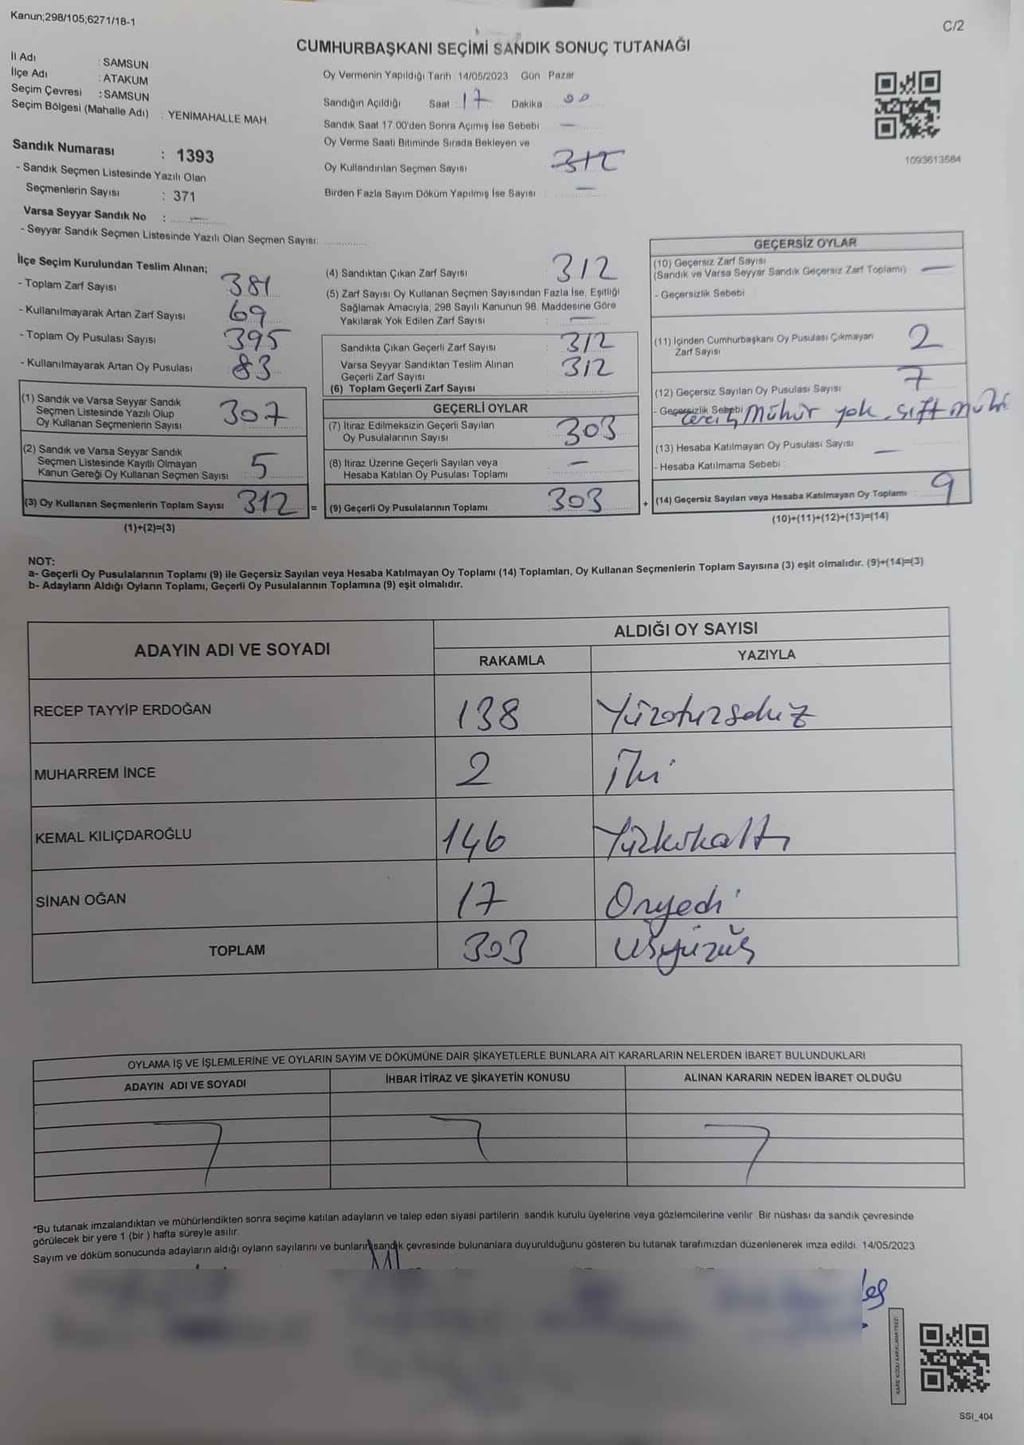 Kanun;298/105;6271/18-1
C/2
CUMHURBAŞKANI SEÇİMİ SANDIK SONUÇ TUTANAĞI
İl Adı : SAMSUN
İlçe Adı : ATAKUM
Seçim Çevresi : SAMSUN
Seçim Bölgesi (Mahalle Adı) : YENİMAHALLE MAH
Sandık Numarası : 1393
- Sandık Seçmen Listesinde Yazılı Olan
Seçmenlerin Sayısı : 371
Varsa Seyyar Sandık No : —
- Seyyar Sandık Seçmen Listesinde Yazılı Olan Seçmen Sayısı:
Oy Vermenin Yapıldığı Tarih 14/05/2023 Gün Pazar
Sandığın Açıldığı Saat 17 Dakika 00
Sandık Saat 17.00'den Sonra Açılmış İse Sebebi —
Oy Verme Saati Bitiminde Sırada Bekleyen ve
Oy Kullandırılan Seçmen Sayısı
Birden Fazla Sayım Döküm Yapılmış İse Sayısı —
1093613584
İlçe Seçim Kurulundan Teslim Alınan;
- Toplam Zarf Sayısı 381
- Kullanılmayarak Artan Zarf Sayısı 69
- Toplam Oy Pusulası Sayısı 395
- Kullanılmayarak Artan Oy Pusulası 83
(1) Sandık ve Varsa Seyyar Sandık
Seçmen Listesinde Yazılı Olup
Oy Kullanan Seçmenlerin Sayısı 307
(2) Sandık ve Varsa Seyyar Sandık
Seçmen Listesinde Kayıtlı Olmayan
Kanun Gereği Oy Kullanan Seçmen Sayısı 5
(3) Oy Kullanan Seçmenlerin Toplam Sayısı 312 =
(1)+(2)=(3)
(4) Sandıktan Çıkan Zarf Sayısı 312
(5) Zarf Sayısı Oy Kullanan Seçmen Sayısından Fazla İse, Eşitliği
Sağlamak Amacıyla, 298 Sayılı Kanunun 98. Maddesine Göre
Yakılarak Yok Edilen Zarf Sayısı —
Sandıkta Çıkan Geçerli Zarf Sayısı : 312
Varsa Seyyar Sandıktan Teslim Alınan
Geçerli Zarf Sayısı : 312
(6) Toplam Geçerli Zarf Sayısı
GEÇERLİ OYLAR
(7) İtiraz Edilmeksizin Geçerli Sayılan
Oy Pusulalarının Sayısı 303
(8) İtiraz Üzerine Geçerli Sayılan veya
Hesaba Katılan Oy Pusulası Toplamı —
(9) Geçerli Oy Pusulalarının Toplamı 303 +
GEÇERSİZ OYLAR
(10) Geçersiz Zarf Sayısı
(Sandık ve Varsa Seyyar Sandık Geçersiz Zarf Toplamı) —
- Geçersizlik Sebebi
(11) İçinden Cumhurbaşkanı Oy Pusulası Çıkmayan
Zarf Sayısı 2
(12) Geçersiz Sayılan Oy Pusulası Sayısı 7
- Geçersizlik Sebebi mühür yok
(13) Hesaba Katılmayan Oy Pusulası Sayısı —
- Hesaba Katılmama Sebebi
(14) Geçersiz Sayılan veya Hesaba Katılmayan Oy Toplamı 9
(10)+(11)+(12)+(13)=(14)
NOT:
a- Geçerli Oy Pusulalarının Toplamı (9) ile Geçersiz Sayılan veya Hesaba Katılmayan Oy Toplamı (14) Toplamları, Oy Kullanan Seçmenlerin Toplam Sayısına (3) eşit olmalıdır. (9)+(14)=(3)
b- Adayların Aldığı Oyların Toplamı, Geçerli Oy Pusulalarının Toplamına (9) eşit olmalıdır.
ADAYIN ADI VE SOYADI
ALDIĞI OY SAYISI
RAKAMLA YAZIYLA
RECEP TAYYİP ERDOĞAN 138 Yüzotuzsekiz
MUHARREM İNCE 2 İki
KEMAL KILIÇDAROĞLU 146 Yüzkırkaltı
SİNAN OĞAN 17 Onyedi
TOPLAM 303 üçyüzüç
OYLAMA İŞ VE İŞLEMLERİNE VE OYLARIN SAYIM VE DÖKÜMÜNE DAİR ŞİKAYETLERLE BUNLARA AİT KARARLARIN NELERDEN İBARET BULUNDUKLARI
ADAYIN ADI VE SOYADI İHBAR İTİRAZ VE ŞİKAYETİN KONUSU ALINAN KARARIN NEDEN İBARET OLDUĞU
*Bu tutanak imzalandıktan ve mühürlendikten sonra seçime katılan adayların ve talep eden siyasi partilerin sandık kurulu üyelerine veya gözlemcilerine verilir. Bir nüshası da sandık çevresinde
görülecek bir yere 1 (bir) hafta süreyle asılır.
Sayım ve döküm sonucunda adayların aldığı oyların sayılarını ve bunların sandık çevresinde bulunanlara duyurulduğunu gösteren bu tutanak tarafımızdan düzenlenerek imza edildi. 14/05/2023
SSI_404